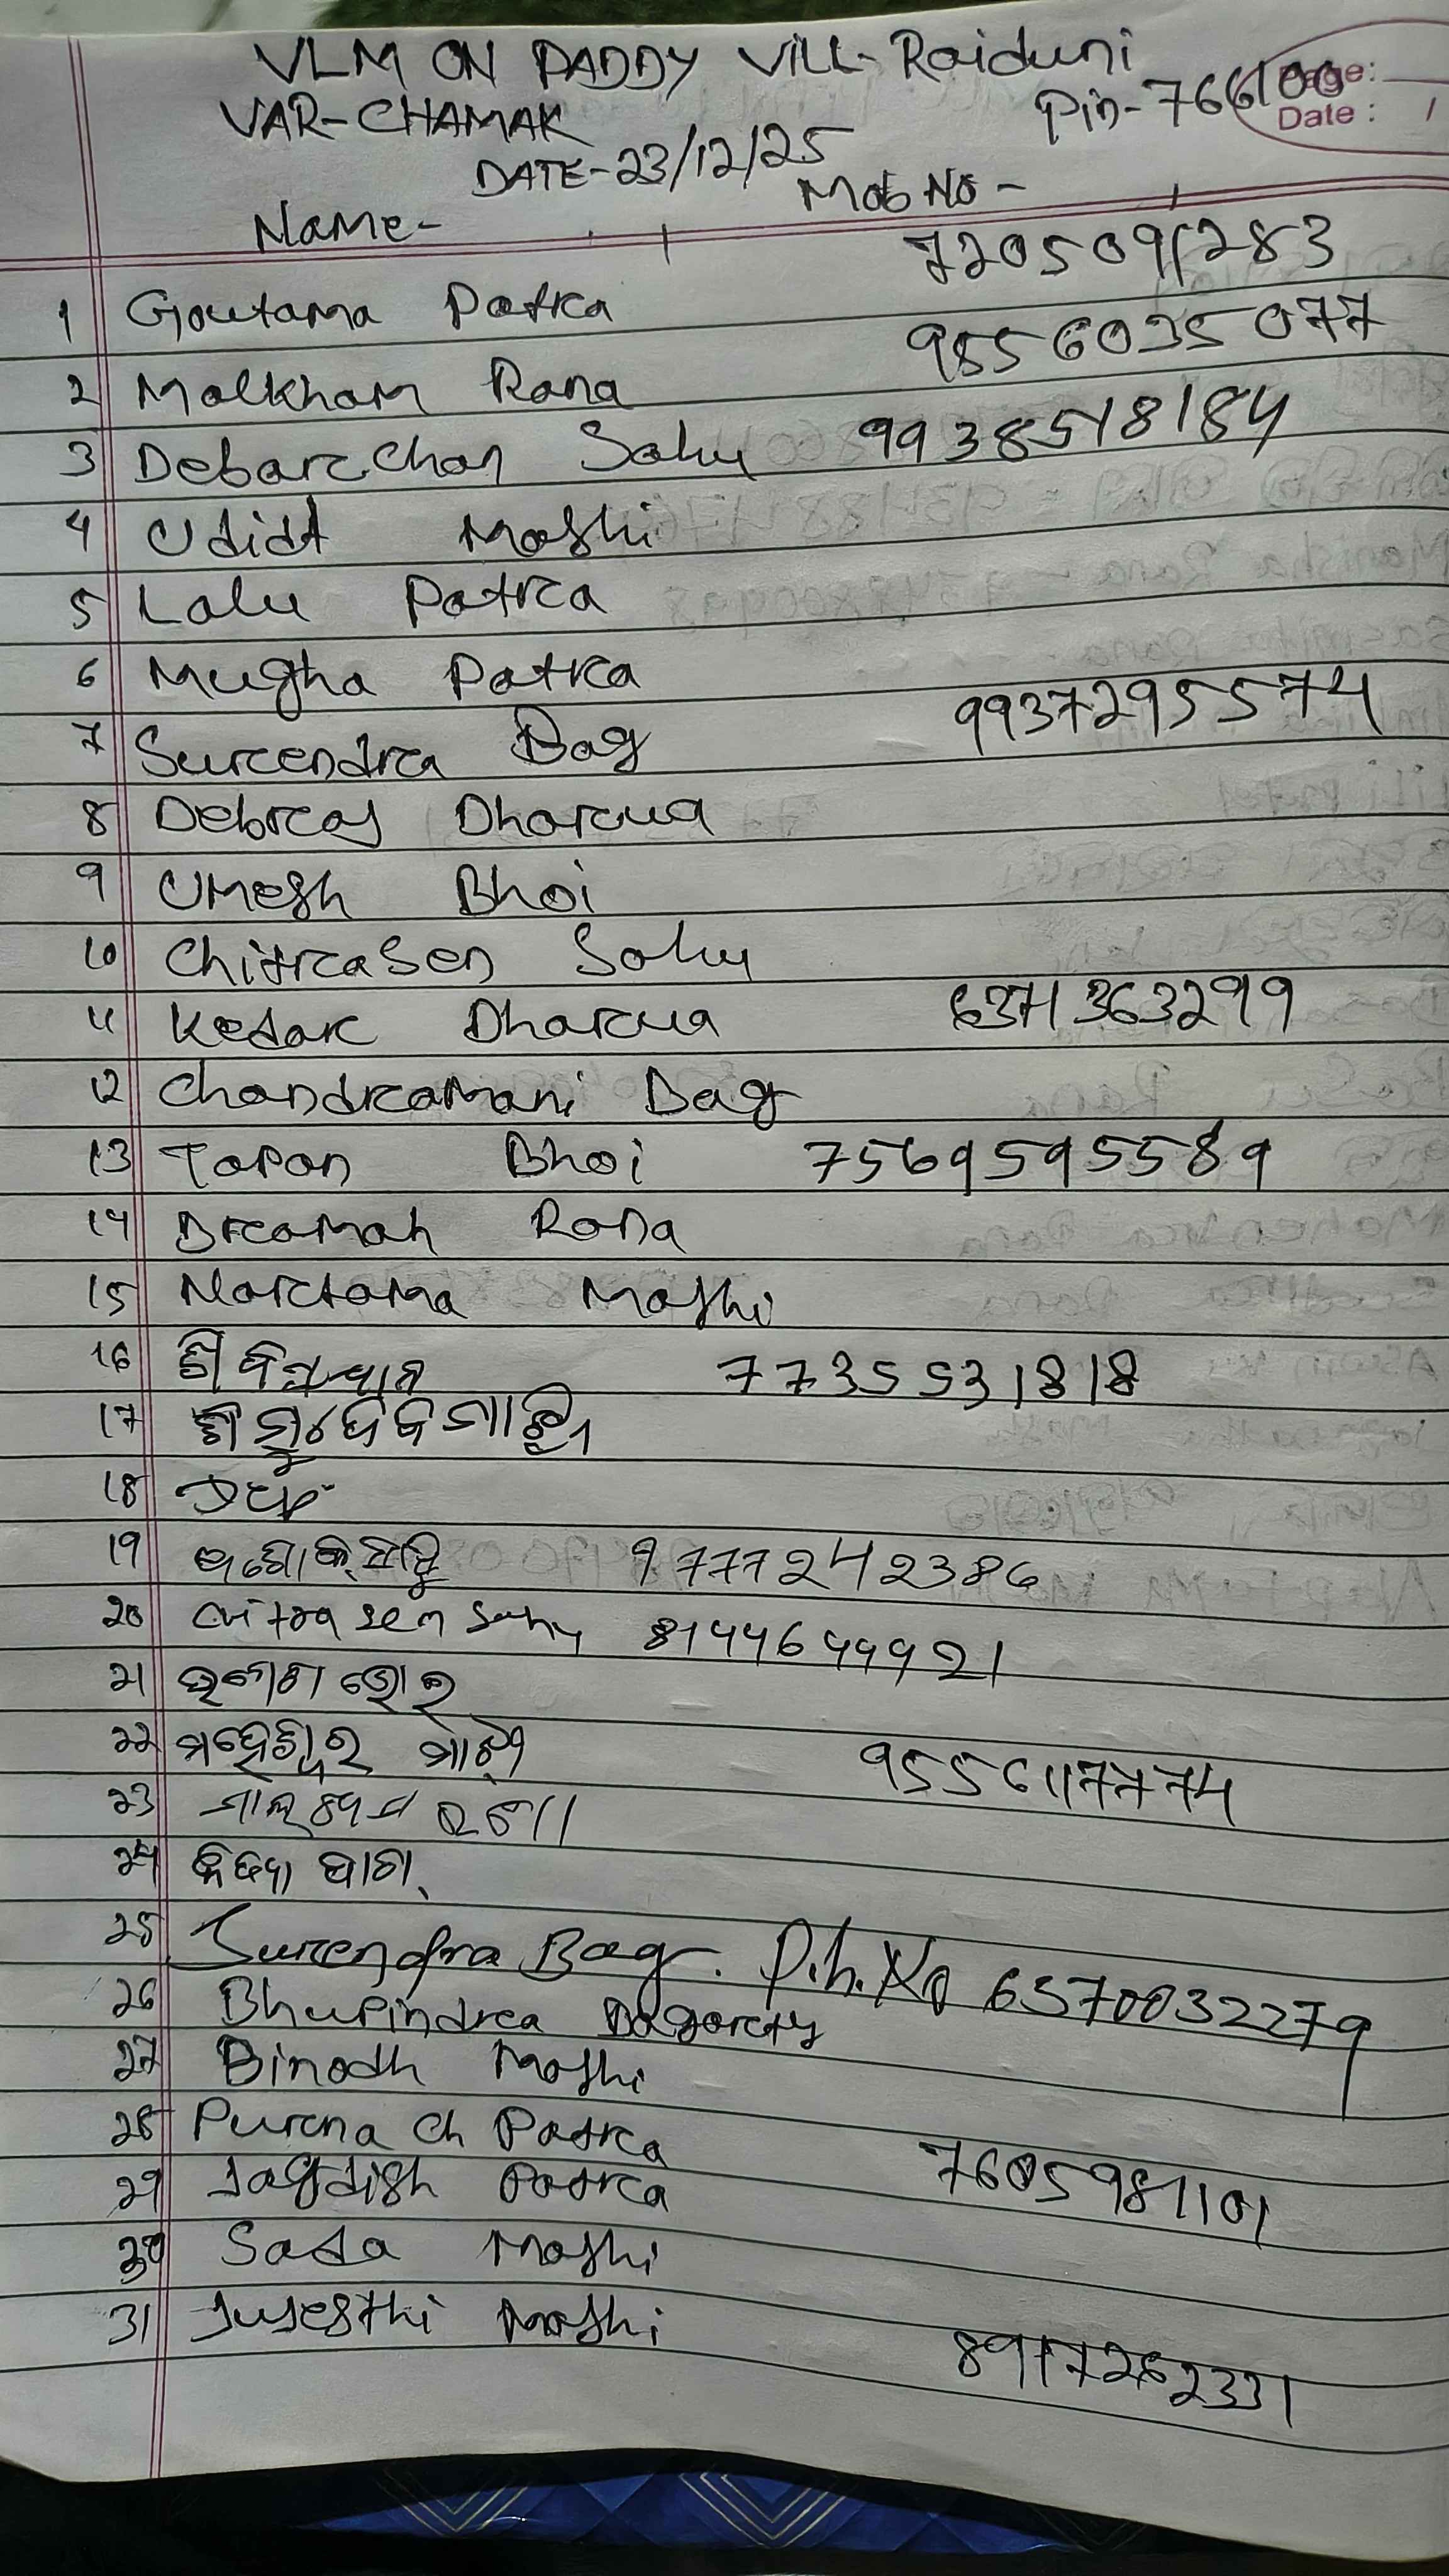 VLM ON PADDY VILL- Raiduni
VAR-CHAMAK Pin-766100
Page:
Date:
DATE-23/12/25
Name- Mob No -
1 Goutama Patra 7205091283
2 Malkham Rana 9556035077
3 Debarcchan Sahu 9938518184
4 Udidt Majhi
5 Lalu Patrca
6 Mugha Patrca
7 Surcendrca Bag 9937295574
8 Debrcaj Dharcua
9 Umesh Bhoi
10 ChitrcaSen Sahu
11 Kedarc Dharcua 6371363299
12 Chandrcamani Bag
13 Tapan Bhoi 7569595589
14 Brcamah Rana
15 Narctama Majhi
16 7735531818
17
18
19 9777242386
20 Chitra sen Sahu 8144644921
21 ଭୋଇ
22 ମହେଶ୍ୱର ମାଝି 9556117774
23 ରଣା
24 ବାଗ
25 Surcendra Bag. P.h.No 6370032279
26 Bhupindrca Bagarcty
27 Binodh Majhi
28 Purcna Ch Patrca
29 Jagdish Patrca 7605981101
30 Sada Majhi
31 Jujesthi Majhi 8917262331